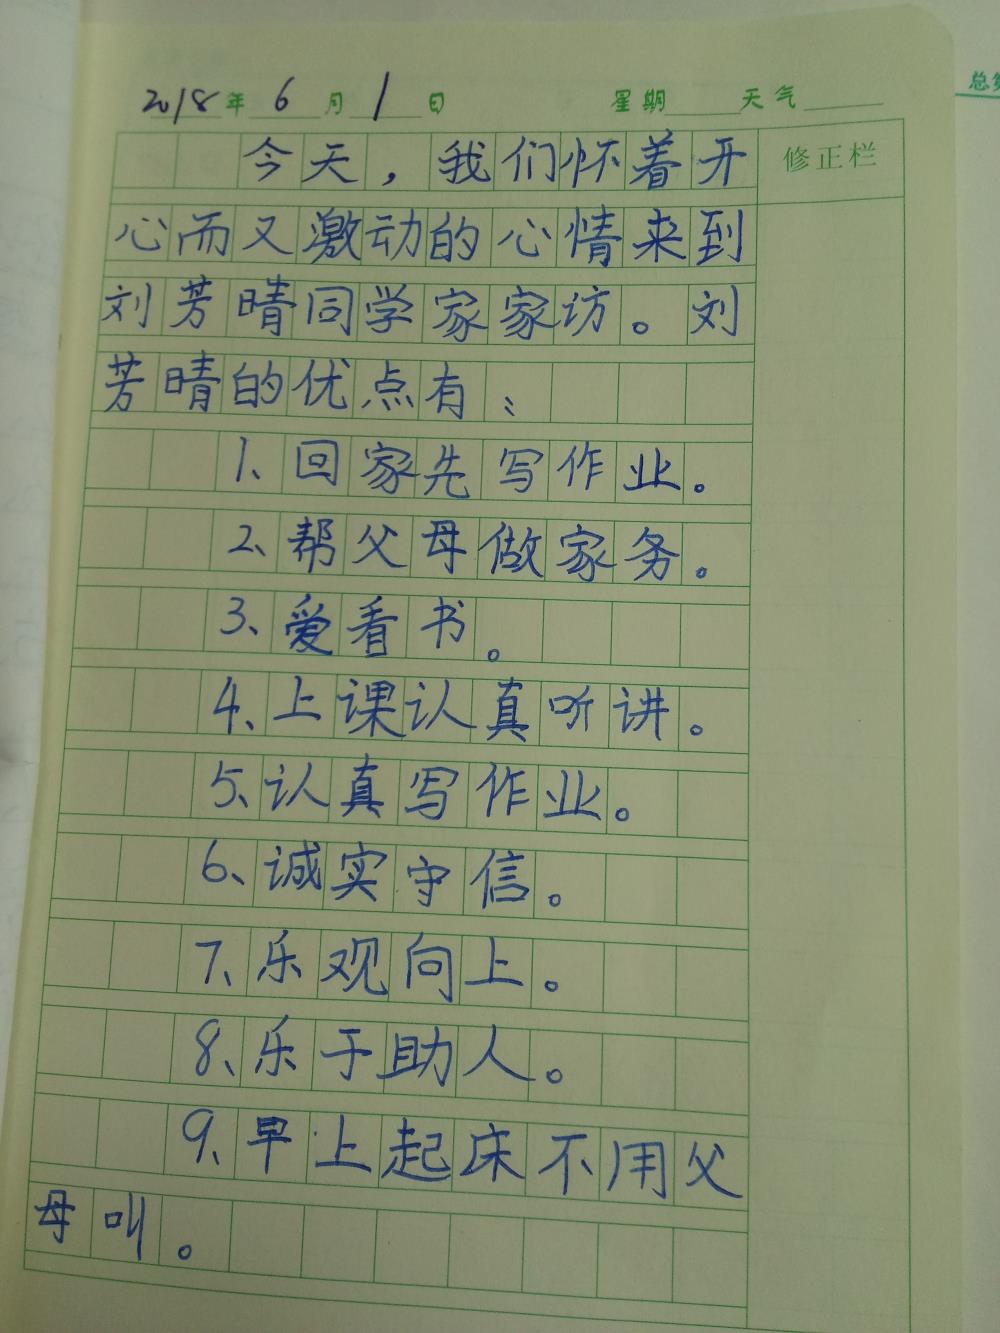 2018年 6月 1日 星期 天气
总
修正栏
今天，我们怀着开
心而又激动的心情来到
刘芳晴同学家家访。刘
芳晴的优点有：
1、回家先写作业。
2、帮父母做家务。
3、爱看书。
4、上课认真听讲。
5、认真写作业。
6、诚实守信。
7、乐观向上。
8、乐于助人。
9、早上起床不用父
母叫。